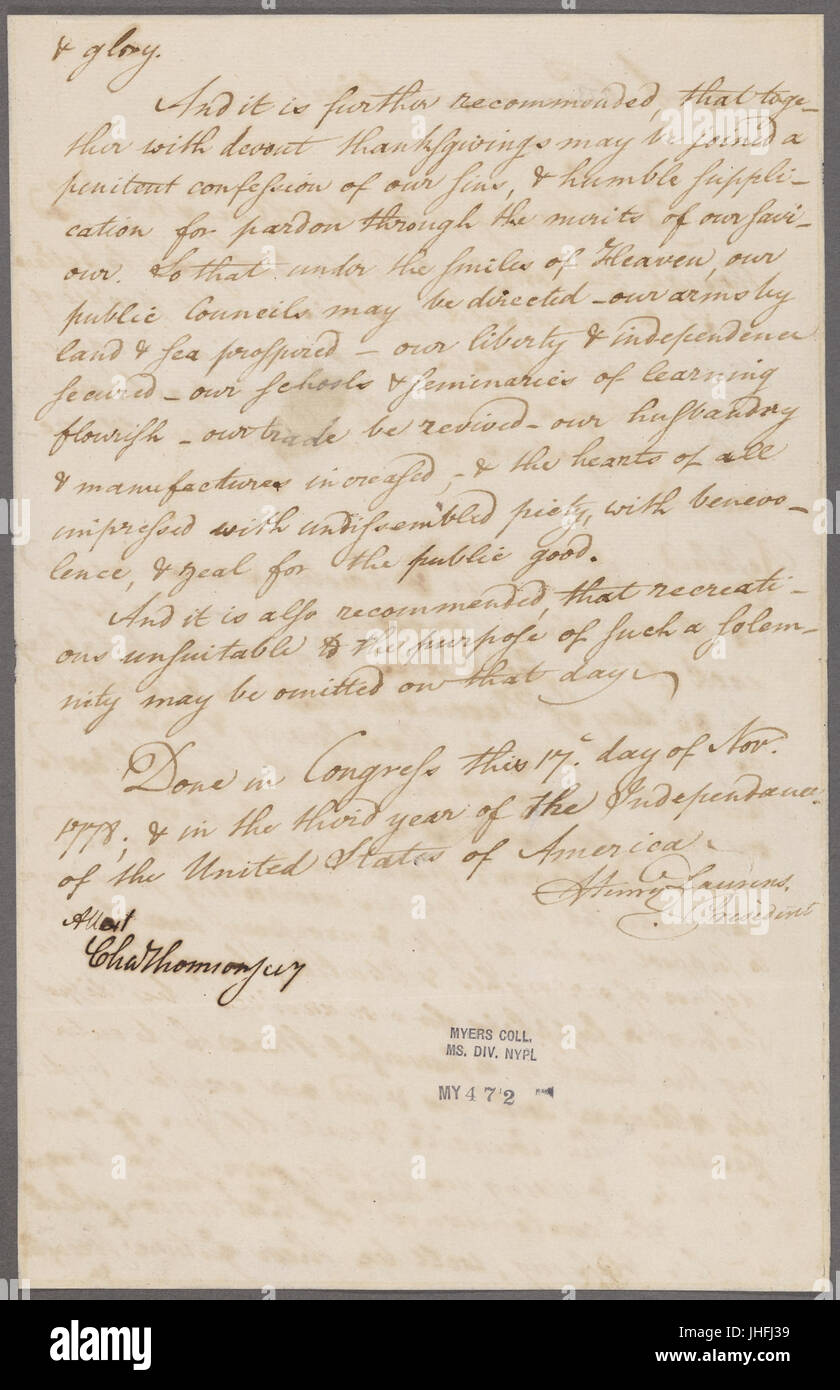 & glory.
And it is further recommended, that toge-
ther with devout thanksgivings may be joined a
penitent confession of our sins, & humble suppli-
cation for pardon through the merits of our savi-
our. So that under the smiles of Heaven, our
public Councils may be directed - our arms by
land & sea prospered - our liberty & independence
secured - our schools & seminaries of learning
flourish - our trade be revived - our husbandry
& manufactures increased, - & the hearts of all
impressed with undissembled piety, with benevo-
lence, & zeal for the public good.
And it is also recommended, that recreati-
ons unsuitable to the purpose of such a solem-
nity may be omitted on that day.
Done in Congress this 17. day of Nov.
1778, & in the third year of the Independance
of the United States of America.
Henry Laurens.
President
Attest
Cha Thomson secy
MYERS COLL.
MS. DIV. NYPL
MY 472
alamy
Image ID: JHFJ39
www.alamy.com